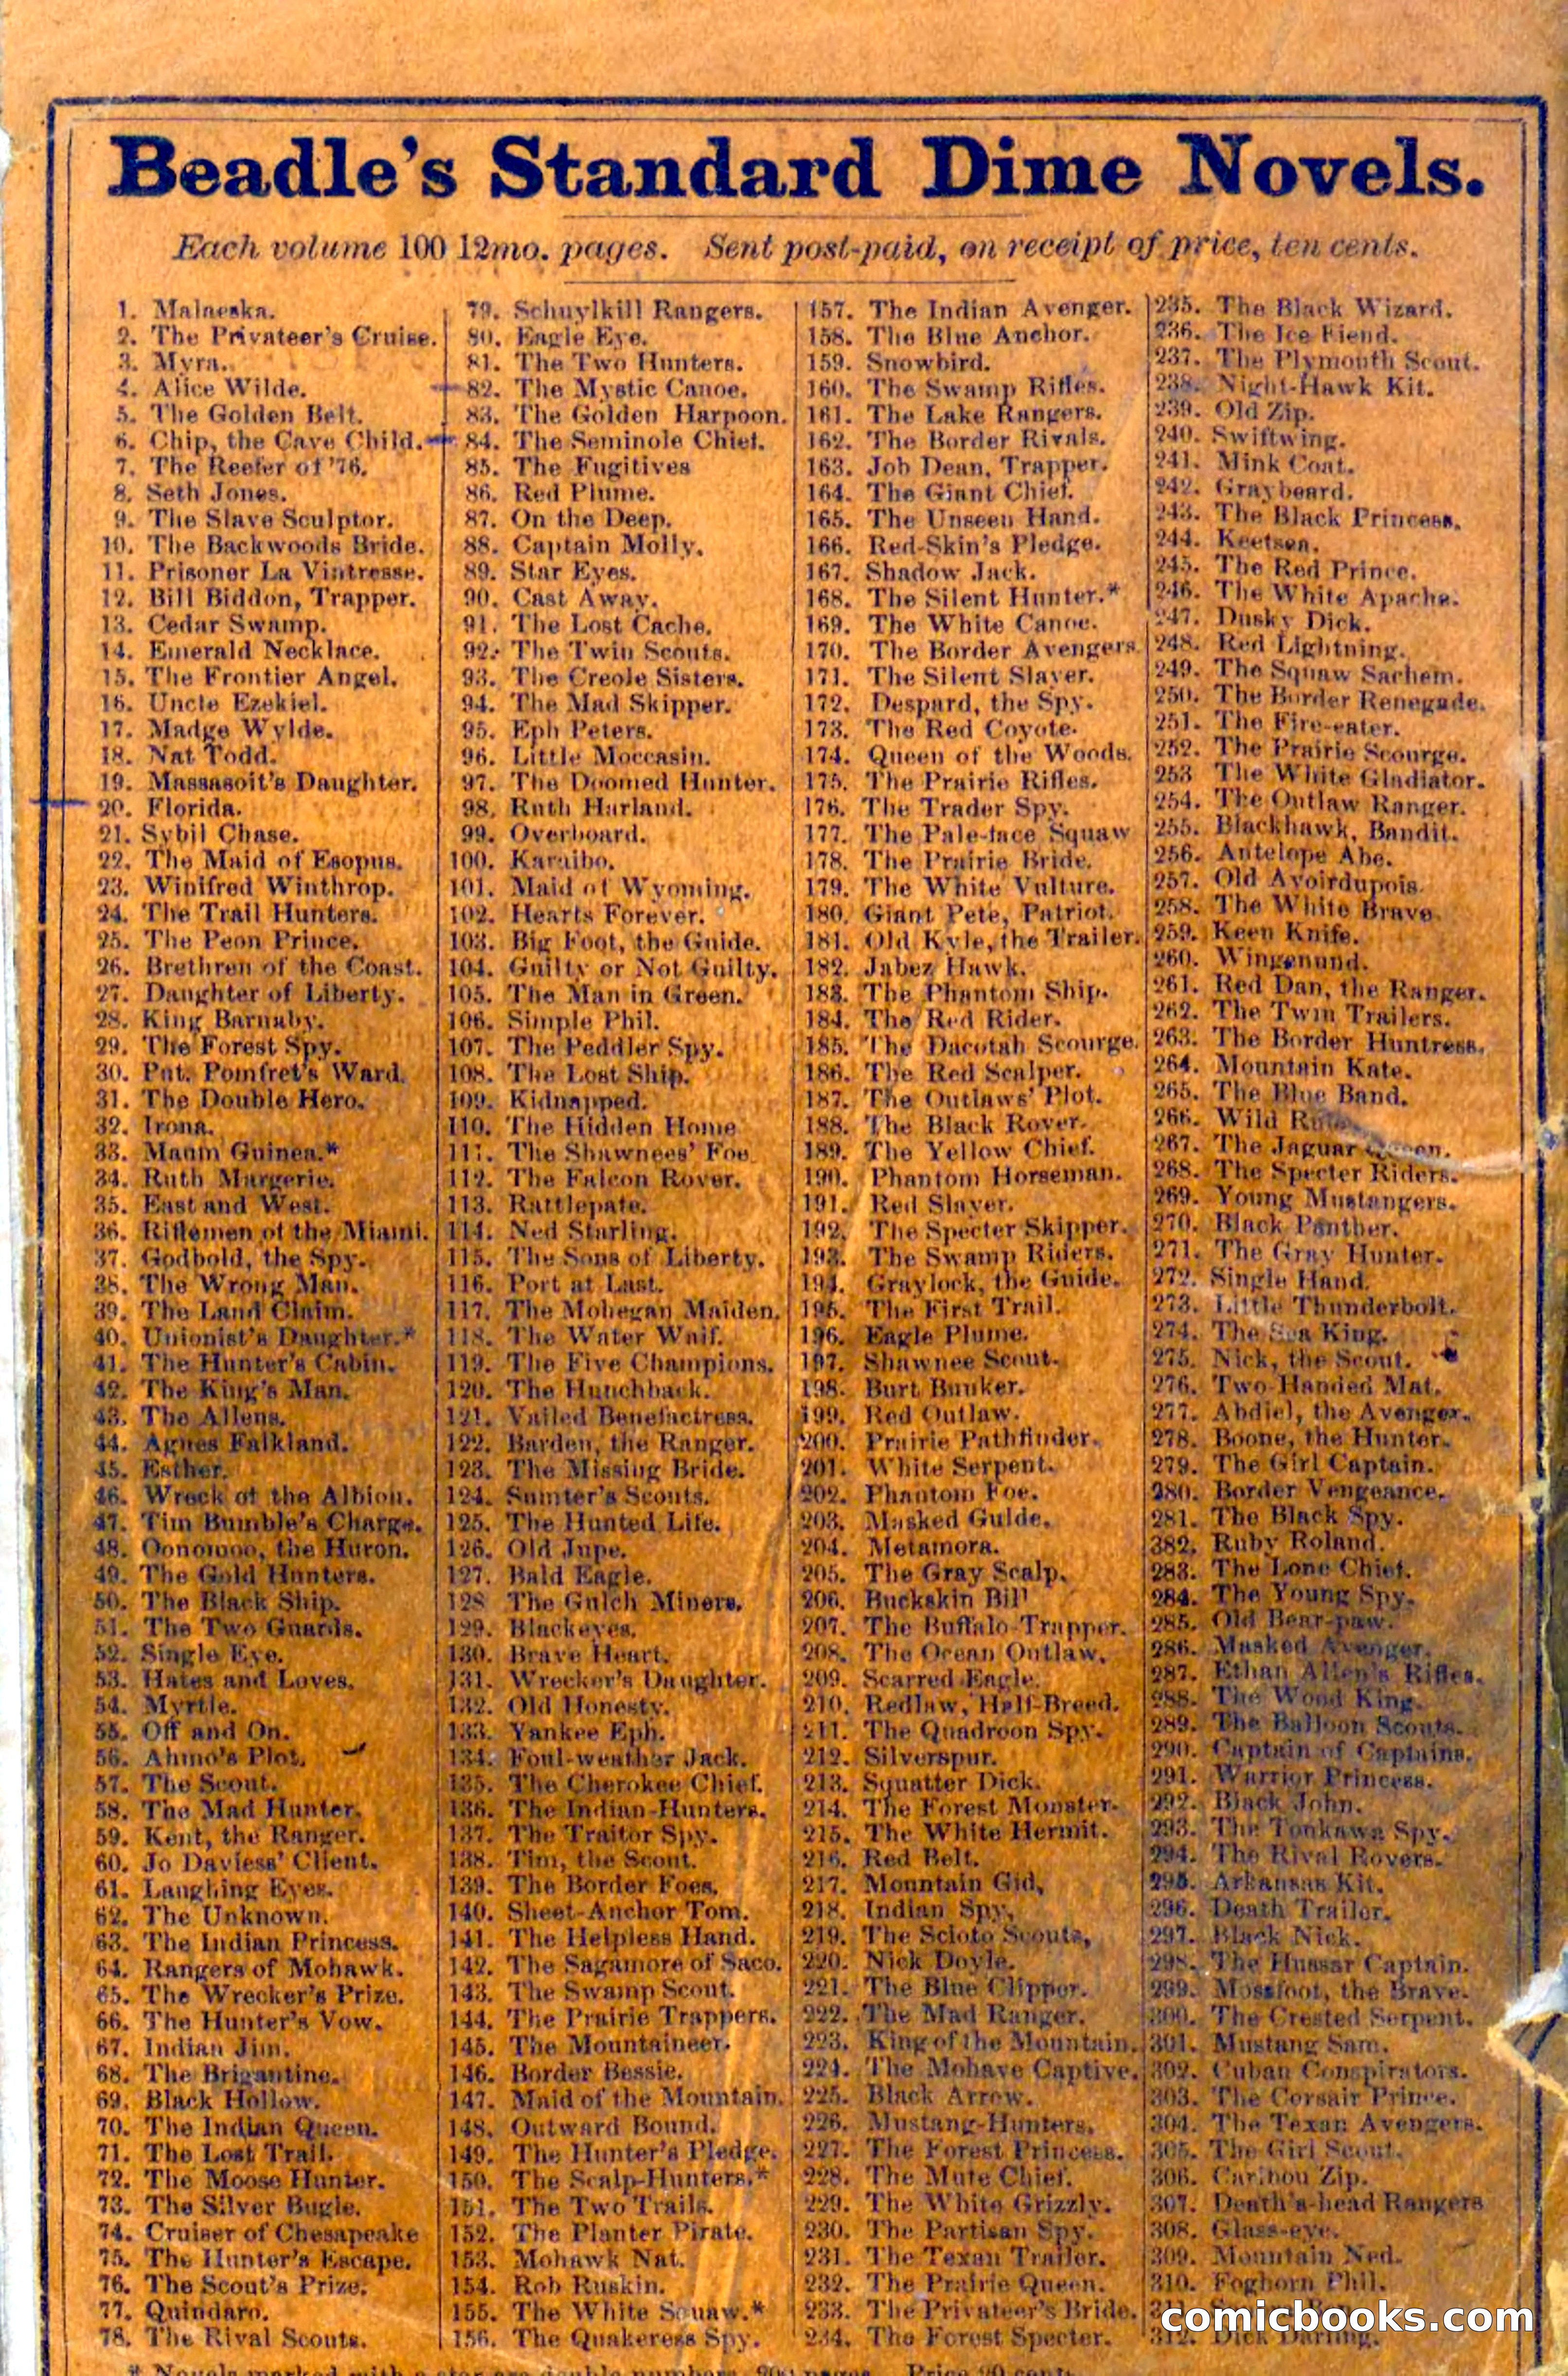 Beadle's Standard Dime Novels.
Each volume 100 12mo. pages. Sent post-paid, on receipt of price, ten cents.
1. Malaeska.
2. The Privateer's Cruise.
3. Myra.
4. Alice Wilde.
5. The Golden Belt.
6. Chip, the Cave Child.
7. The Reefer of '76.
8. Seth Jones.
9. The Slave Sculptor.
10. The Backwoods Bride.
11. Prisoner La Vintresse.
12. Bill Biddon, Trapper.
13. Cedar Swamp.
14. Emerald Necklace.
15. The Frontier Angel.
16. Uncle Ezekiel.
17. Madge Wylde.
18. Nat Todd.
19. Massasoit's Daughter.
20. Florida.
21. Sybil Chase.
22. The Maid of Esopus.
23. Winifred Winthrop.
24. The Trail Hunters.
25. The Peon Prince.
26. Brethren of the Coast.
27. Daughter of Liberty.
28. King Barnaby.
29. The Forest Spy.
30. Put. Pomfret's Ward.
31. The Double Hero.
32. Irona.
33. Maum Guinea.*
34. Ruth Margerie.
35. East and West.
36. Riflemen of the Miami.
37. Godbold, the Spy.
38. The Wrong Man.
39. The Land Claim.
40. Unionist's Daughter.*
41. The Hunter's Cabin.
42. The King's Man.
43. The Allens.
44. Agnes Falkland.
45. Esther.
46. Wreck of the Albion.
47. Tim Bumble's Charge.
48. Oonomoo, the Huron.
49. The Gold Hunters.
50. The Black Ship.
51. The Two Guards.
52. Single Eye.
53. Hates and Loves.
54. Myrtle.
55. Off and On.
56. Ahmo's Plot.
57. The Scout.
58. The Mad Hunter.
59. Kent, the Ranger.
60. Jo Daviess' Client.
61. Laughing Eyes.
62. The Unknown.
63. The Indian Princess.
64. Rangers of Mohawk.
65. The Wrecker's Prize.
66. The Hunter's Vow.
67. Indian Jim.
68. The Brigantine.
69. Black Hollow.
70. The Indian Queen.
71. The Lost Trail.
72. The Moose Hunter.
73. The Silver Bugle.
74. Cruiser of Chesapeake
75. The Hunter's Escape.
76. The Scout's Prize.
77. Quindaro.
78. The Rival Scouts.
79. Schuylkill Rangers.
80. Eagle Eye.
81. The Two Hunters.
82. The Mystic Canoe.
83. The Golden Harpoon.
84. The Seminole Chief.
85. The Fugitives
86. Red Plume.
87. On the Deep.
88. Captain Molly.
89. Star Eyes.
90. Cast Away.
91. The Lost Cache.
92. The Twin Scouts.
93. The Creole Sisters.
94. The Mad Skipper.
95. Eph Peters.
96. Little Moccasin.
97. The Doomed Hunter.
98. Ruth Harland.
99. Overboard.
100. Karaibo.
101. Maid of Wyoming.
102. Hearts Forever.
103. Big Foot, the Guide.
104. Guilty or Not Guilty.
105. The Man in Green.
106. Simple Phil.
107. The Peddler Spy.
108. The Lost Ship.
109. Kidnapped.
110. The Hidden Home
111. The Shawnees' Foe.
112. The Falcon Rover.
113. Rattlepate.
114. Ned Starling.
115. The Sons of Liberty.
116. Port at Last.
117. The Mohegan Maiden.
118. The Water Waif.
119. The Five Champions.
120. The Hunchback.
121. Vailed Benefactress.
122. Barden, the Ranger.
123. The Missing Bride.
124. Sumter's Scouts.
125. The Hunted Life.
126. Old Jupe.
127. Bald Eagle.
128 The Gulch Miners.
129. Blackeyes.
130. Brave Heart.
131. Wrecker's Daughter.
132. Old Honesty.
133. Yankee Eph.
134. Foul-weather Jack.
135. The Cherokee Chief.
136. The Indian-Hunters.
137. The Traitor Spy.
138. Tim, the Scout.
139. The Border Foes.
140. Sheet-Anchor Tom.
141. The Helpless Hand.
142. The Sagamore of Saco.
143. The Swamp Scout.
144. The Prairie Trappers.
145. The Mountaineer.
146. Border Bessie.
147. Maid of the Mountain.
148. Outward Bound.
149. The Hunter's Pledge.
150. The Scalp-Hunters.*
151. The Two Trails.
152. The Planter Pirate.
153. Mohawk Nat.
154. Rob Ruskin.
155. The White Squaw.*
156. The Quakeress Spy.
157. The Indian Avenger.
158. The Blue Anchor.
159. Snowbird.
160. The Swamp Rifles.
161. The Lake Rangers.
162. The Border Rivals.
163. Job Dean, Trapper.
164. The Giant Chief.
165. The Unseen Hand.
166. Red-Skin's Pledge.
167. Shadow Jack.
168. The Silent Hunter.*
169. The White Canoe.
170. The Border Avengers.
171. The Silent Slayer.
172. Despard, the Spy.
173. The Red Coyote.
174. Queen of the Woods.
175. The Prairie Rifles.
176. The Trader Spy.
177. The Pale-face Squaw
178. The Prairie Bride.
179. The White Vulture.
180. Giant Pete, Patriot.
181. Old Kyle, the Trailer.
182. Jabez Hawk.
183. The Phantom Ship.
184. The Red Rider.
185. The Dacotah Scourge.
186. The Red Scalper.
187. The Outlaws' Plot.
188. The Black Rover.
189. The Yellow Chief.
190. Phantom Horseman.
191. Red Slayer.
192. The Specter Skipper.
193. The Swamp Riders.
194. Graylock, the Guide.
195. The First Trail.
196. Eagle Plume.
197. Shawnee Scout.
198. Burt Bunker.
199. Red Outlaw.
200. Prairie Pathfinder.
201. White Serpent.
202. Phantom Foe.
203. Masked Guide.
204. Metamora.
205. The Gray Scalp.
206. Buckskin Bill
207. The Buffalo Trapper.
208. The Ocean Outlaw.
209. Scarred Eagle.
210. Redlaw, Half-Breed.
211. The Quadroon Spy.
212. Silverspur.
213. Squatter Dick.
214. The Forest Monster.
215. The White Hermit.
216. Red Belt.
217. Mountain Gid,
218. Indian Spy,
219. The Scioto Scouts,
220. Nick Doyle.
221. The Blue Clipper.
222. The Mad Ranger.
223. King of the Mountain.
224. The Mohave Captive.
225. Black Arrow.
226. Mustang-Hunters.
227. The Forest Princess.
228. The Mute Chief.
229. The White Grizzly.
230. The Partisan Spy.
231. The Texan Trailer.
232. The Prairie Queen.
233. The Privateer's Bride.
234. The Forest Specter.
235. The Black Wizard.
236. The Ice Fiend.
237. The Plymouth Scout.
238. Night-Hawk Kit.
239. Old Zip.
240. Swiftwing.
241. Mink Coat.
242. Graybeard.
243. The Black Princess.
244. Keetsea.
245. The Red Prince.
246. The White Apache.
247. Dusky Dick.
248. Red Lightning.
249. The Squaw Sachem.
250. The Border Renegade.
251. The Fire-eater.
252. The Prairie Scourge.
253 The White Gladiator.
254. The Outlaw Ranger.
255. Blackhawk, Bandit.
256. Antelope Abe.
257. Old Avoirdupois.
258. The White Brave.
259. Keen Knife.
260. Wingenund.
261. Red Dan, the Ranger.
262. The Twin Trailers.
263. The Border Huntress.
264. Mountain Kate.
265. The Blue Band.
266. Wild
267. The Jaguar Queen.
268. The Specter Riders.
269. Young Mustangers.
270. Black Panther.
271. The Gray Hunter.
272. Single Hand.
273. Little Thunderbolt.
274. The Sea King.
275. Nick, the Scout.
276. Two-Handed Mat.
277. Abdiel, the Avenger.
278. Boone, the Hunter.
279. The Girl Captain.
280. Border Vengeance.
281. The Black Spy.
382. Ruby Roland.
283. The Lone Chief.
284. The Young Spy.
285. Old Bear-paw.
286. Masked Avenger.
287. Ethan Allen's Rifles.
288. The Wood King.
289. The Balloon Scouts.
290. Captain of Captains.
291. Warrior Princess.
292. Black John.
293. The Tonkawa Spy.
294. The Rival Rovers.
295. Arkansas Kit.
296. Death Trailer.
297. Black Nick.
298. The Hussar Captain.
299. Mossfoot, the Brave.
300. The Crested Serpent.
301. Mustang Sam.
302. Cuban Conspirators.
303. The Corsair Prince.
304. The Texan Avengers.
305. The Girl Scout.
306. Caribou Zip.
307. Death's-head Rangers
308. Glass-eye.
309. Mountain Ned.
310. Foghorn Phil.
311.
312. Dick Darling.
* Novels marked with a star are double numbers, 200 pages. Price 20 cents.
comicbooks.com